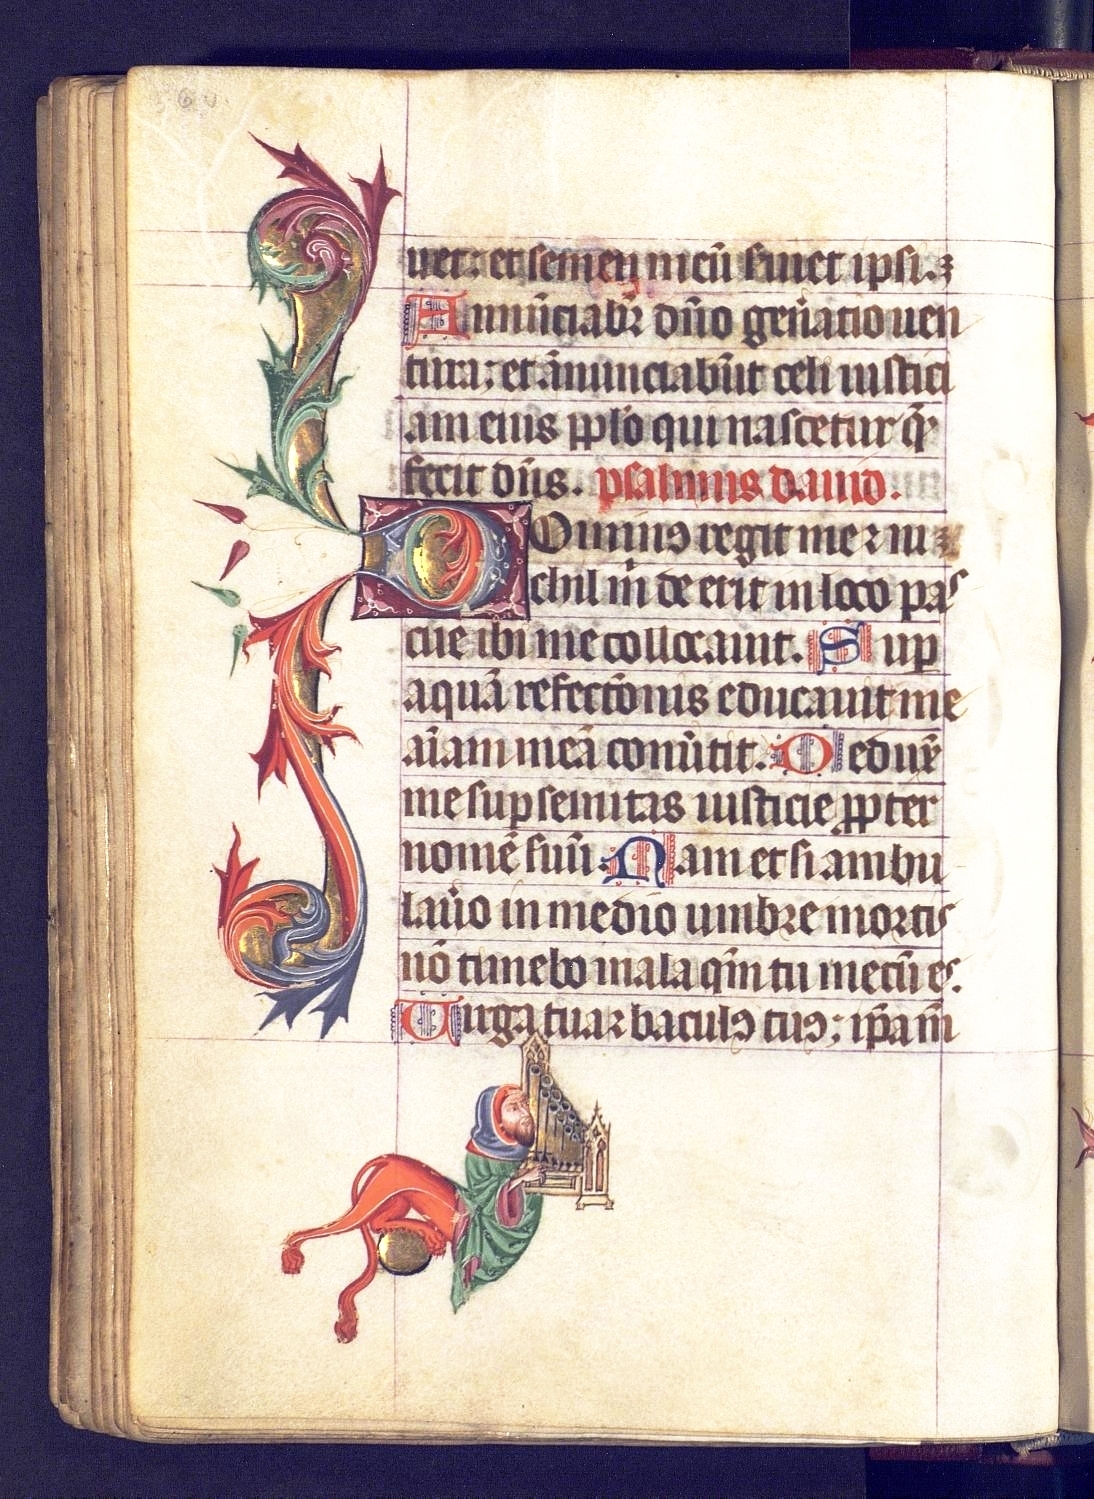 uet: et semen meū seruiet ipsi. ⁊
Annūciabr̄ dño gen̄atio uen
tura: et ānunciabūt celi iustici
am eius pplo qui nascetur q̄
fecit dn̄s. psalmus dauid.
Dominꝰ regit me ⁊ ni
chil m̄ de erit in loco pas
cue ibi me collocauit. Sup
aquā refectōnis educauit me
aīam meā conūtit. Deduxͭ
me sup semitas iusticie ꝓpter
nomē suū. Nam et si ambu
lau̾o in medio umbre mortis
nō timebo mala qm̄ tu mecū es.
Uirga tua ⁊ baculꝰ tuꝰ: ip̄a m̄